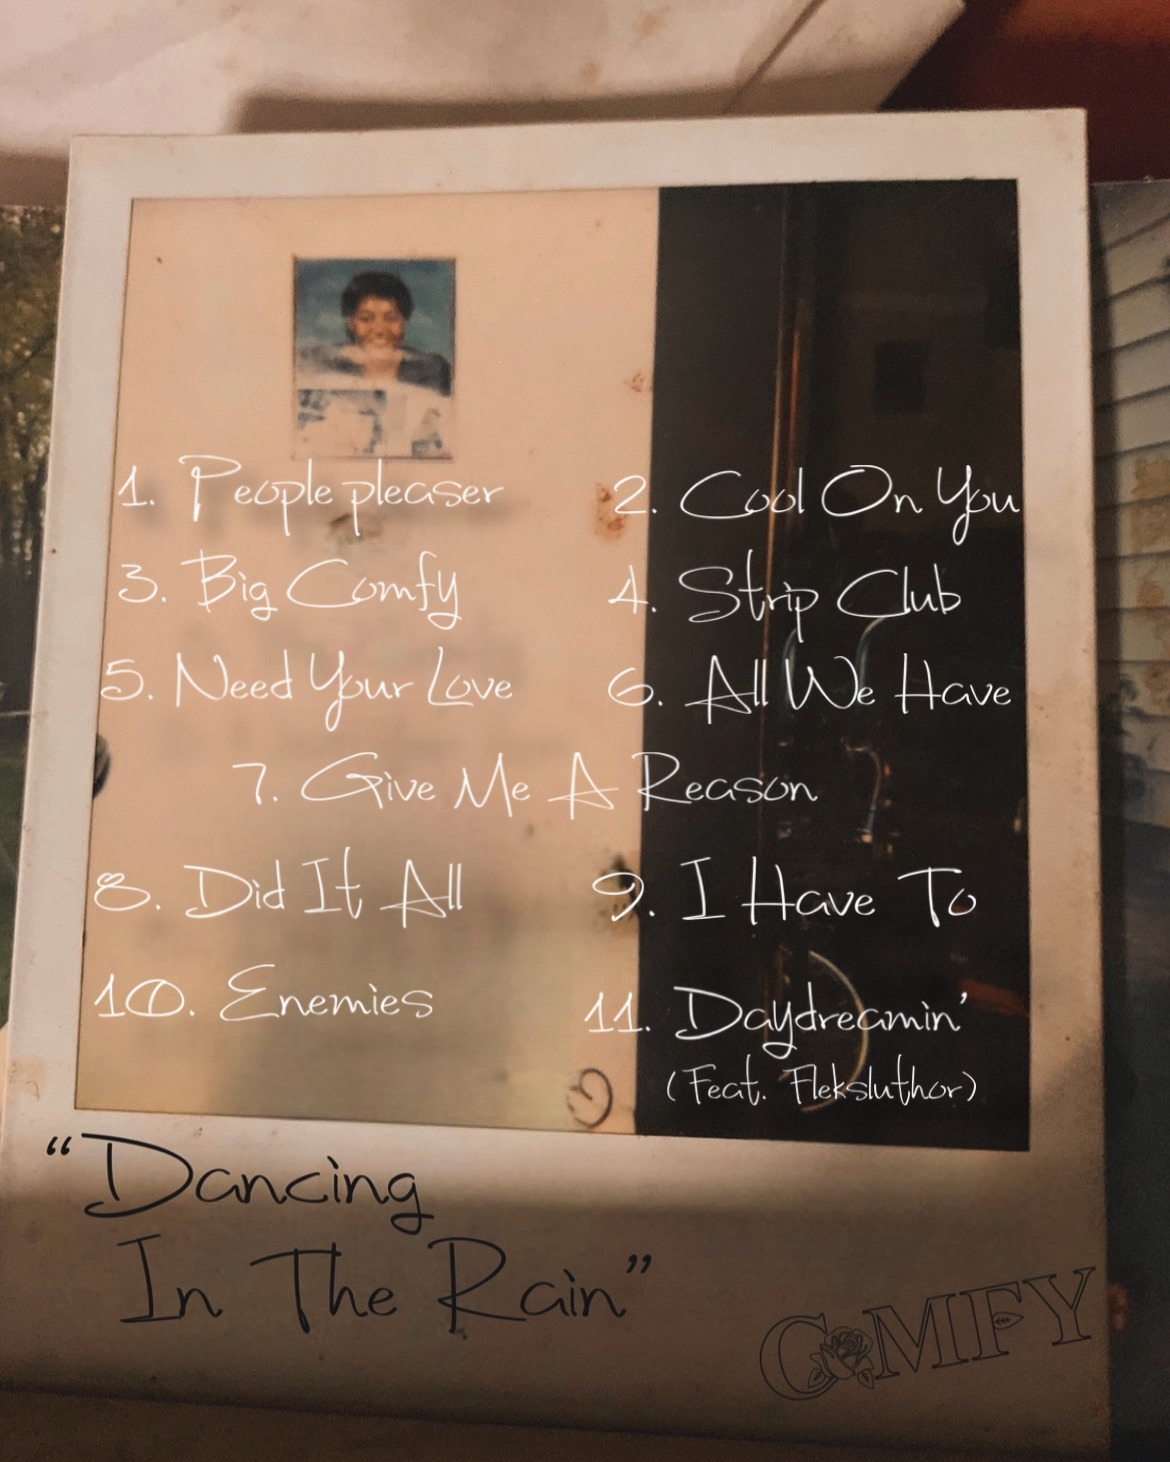 1. People pleaser
2. Cool On You
3. Big Comfy
4. Strip Club
5. Need Your Love
6. All We Have
7. Give Me A Reason
8. Did It All
9. I Have To
10. Enemies
11. Daydreamin'
(Feat. Fleksluthor)
“Dancing
In The Rain”
COMFY